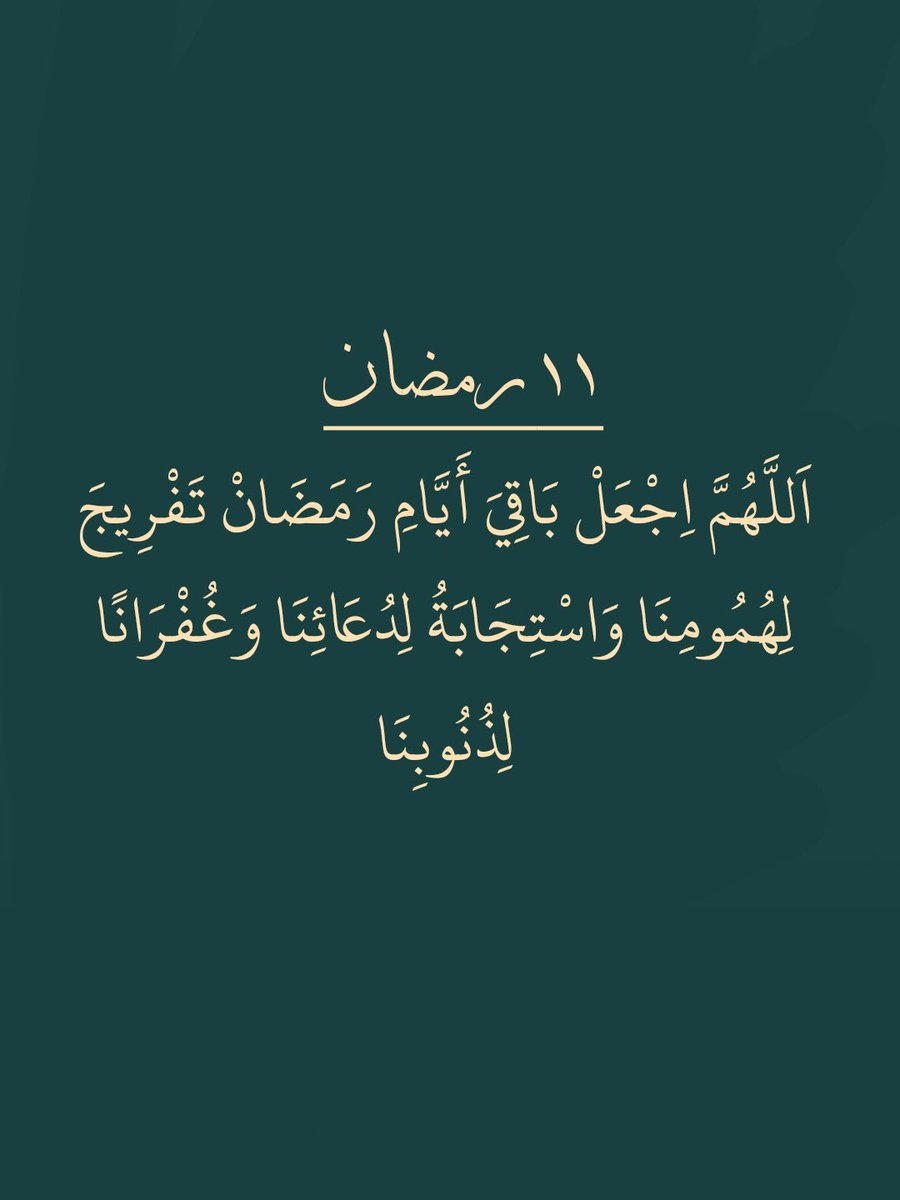 ١١ رمضان
اَللَّهُمَّ اِجْعَلْ بَاقِيَ أَيَّامِ رَمَضَانْ تَفْرِيجَ
لِهُمُومِنَا وَاسْتِجَابَةُ لِدُعَائِنَا وَغُفْرَانًا
لِذُنُوبِنَا